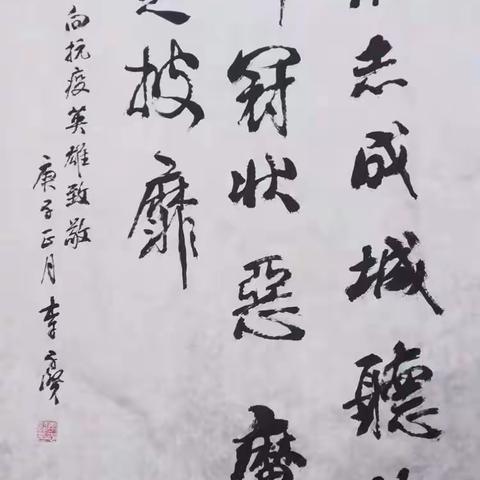 志成城聽
冠狀惡魔
披靡
向抗疫英雄致敬
庚子正月李